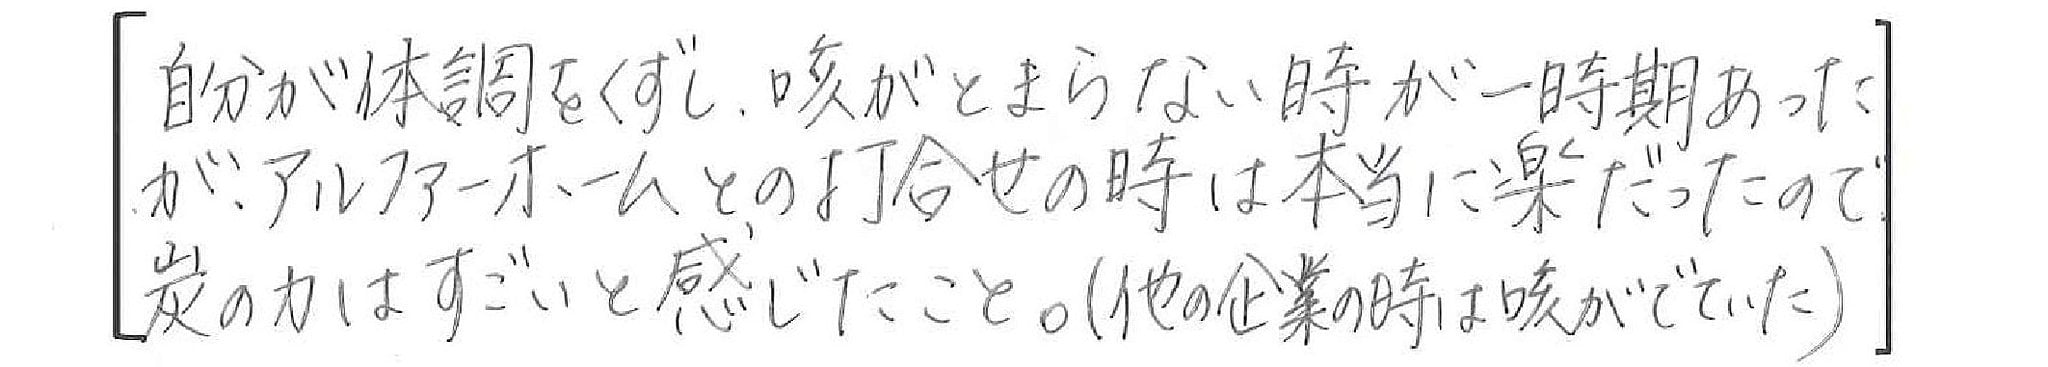 自分が体調をくずし、咳がとまらない時が一時期あった
が、アルファーホームとの打合せの時は本当に楽だったので、
炭の力はすごいと感じたこと。(他の企業の時は咳がでていた)